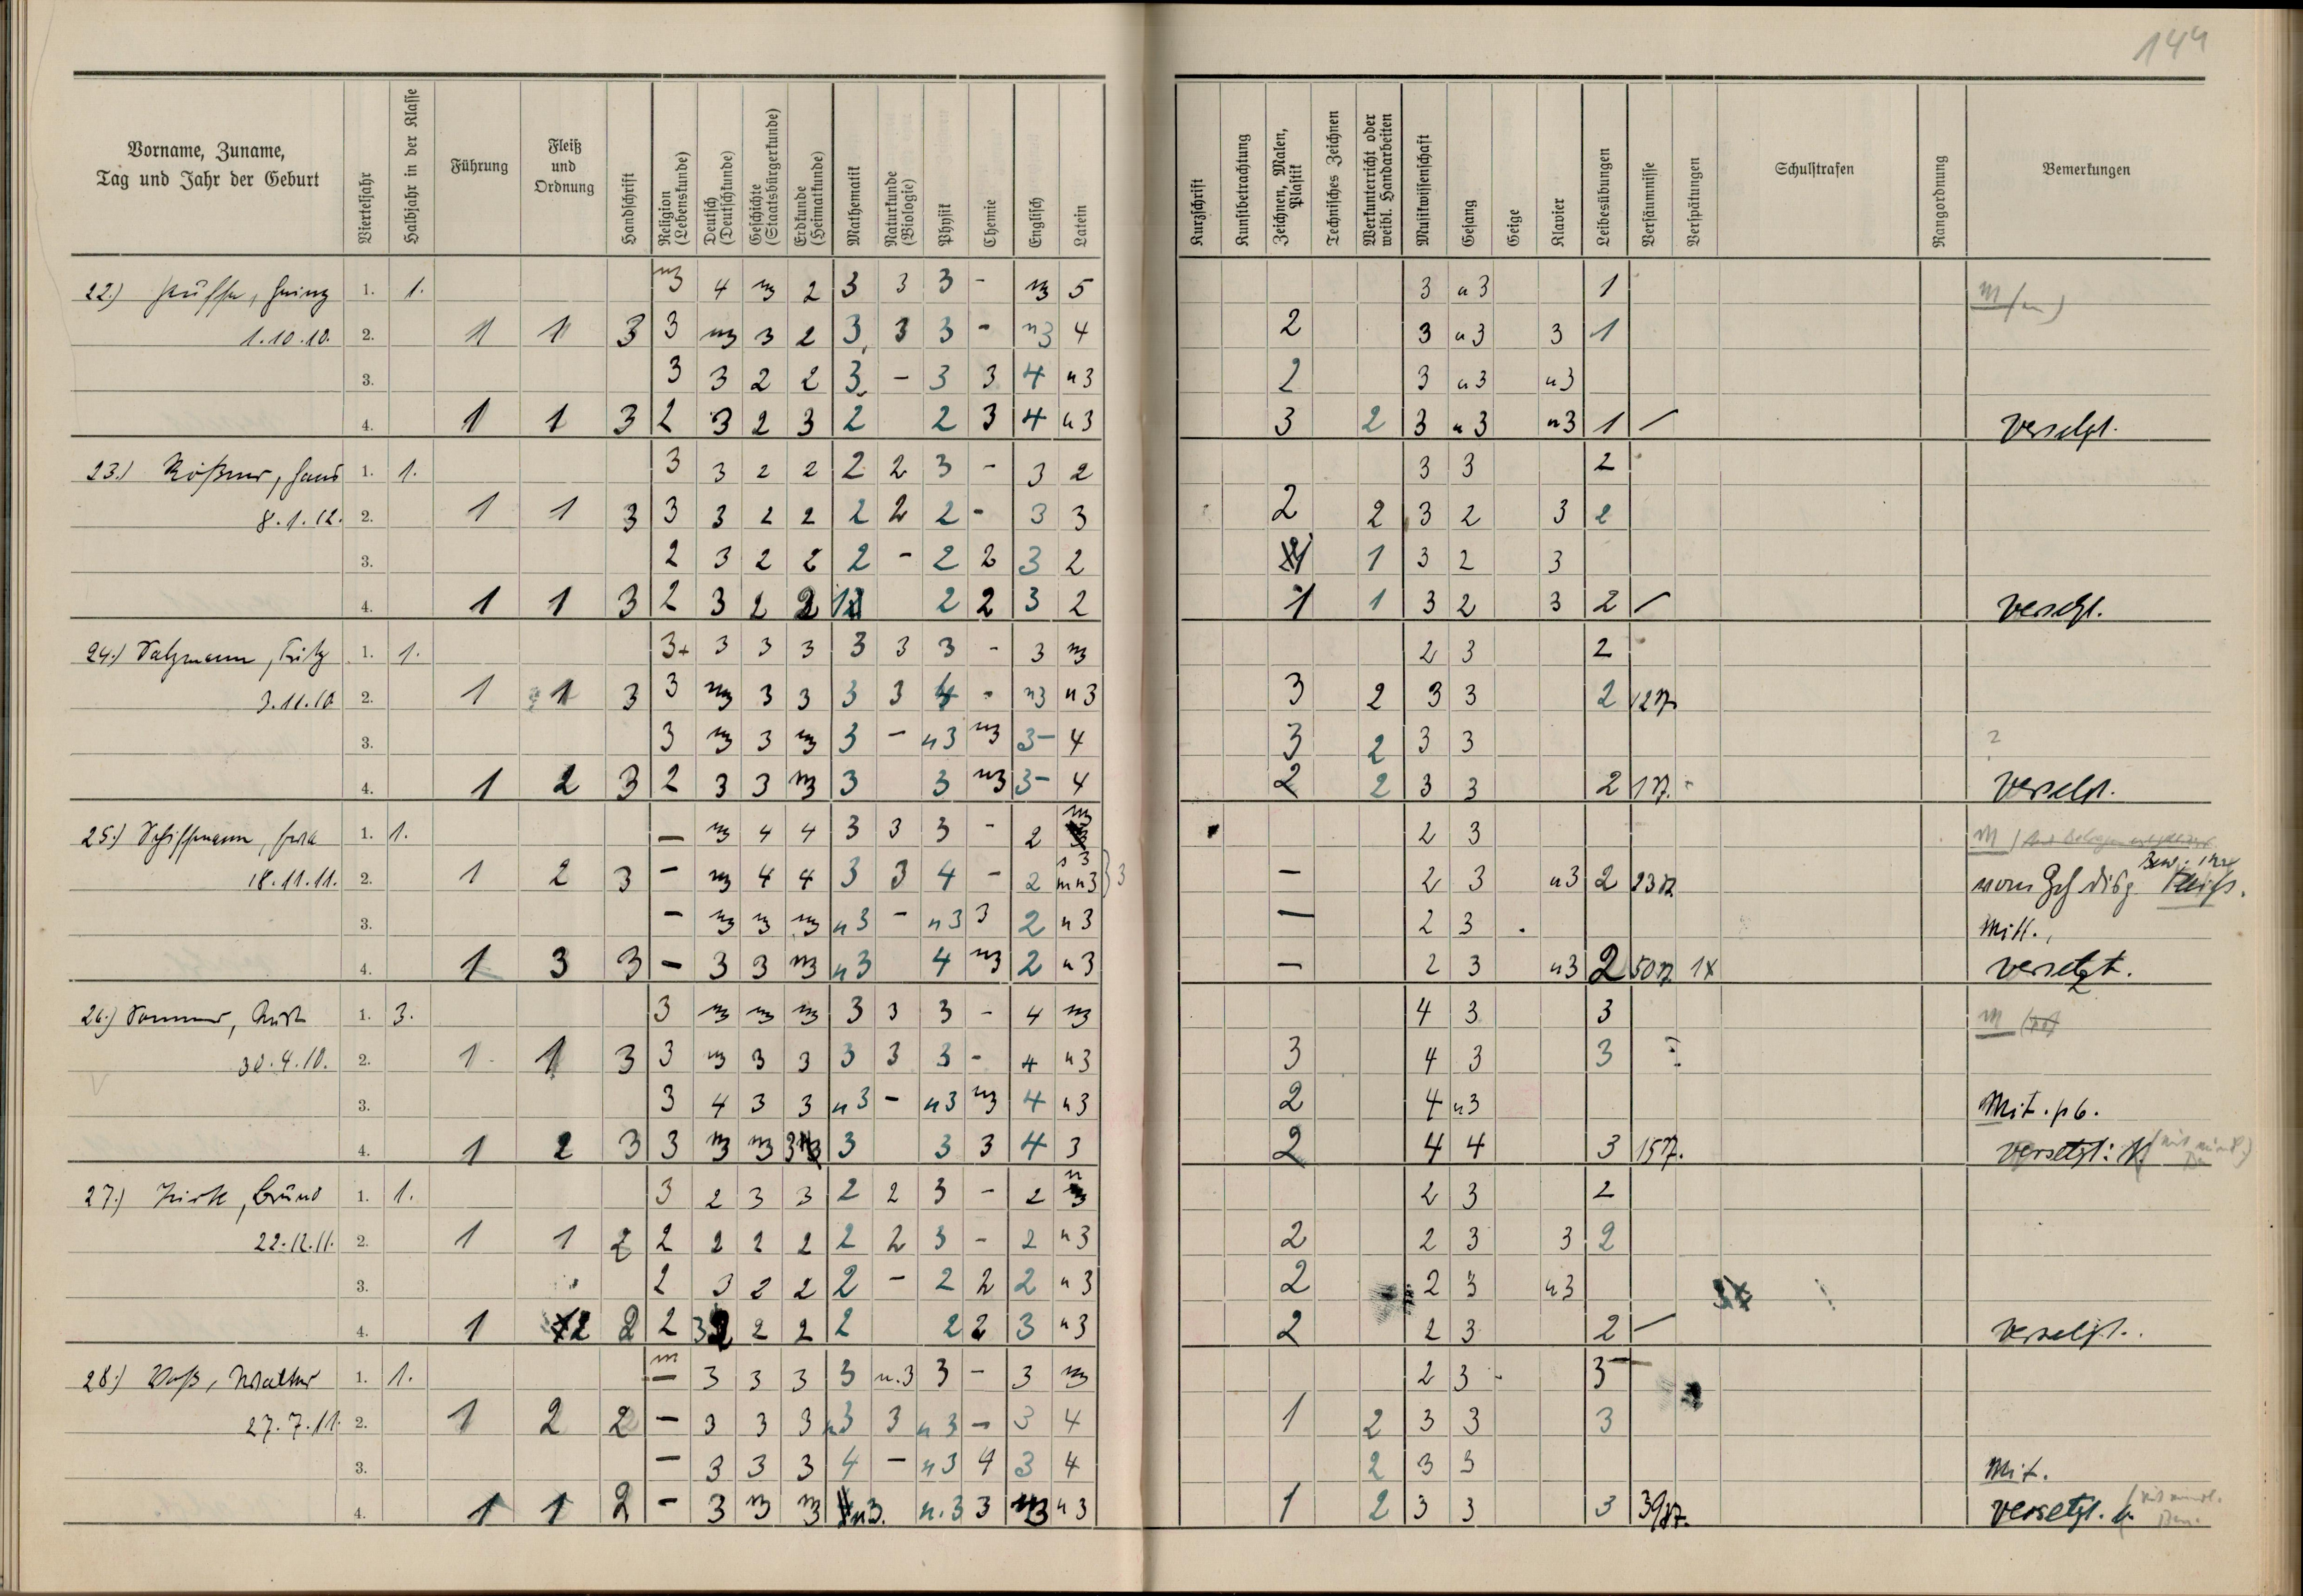 144
Vorname, Zuname,
Tag und Jahr der Geburt
Vierteljahr
Halbjahr in der Klasse
Führung
Fleiß
und
Ordnung
Handschrift
Religion
(Lebenskunde)
Deutsch
(Deutschkunde)
Geschichte
(Staatsbürgerkunde)
Erdkunde
(Heimatkunde)
Mathematik
Naturkunde
(Biologie)
Physik
Chemie
Englisch
Latein
Kurzschrift
Kunstbetrachtung
Zeichnen, Malen,
Plastik
Technisches Zeichnen
Werkunterricht oder
weibl. Handarbeiten
Musikwissenschaft
Gesang
Geige
Klavier
Leibesübungen
Versäumnisse
Verspätungen
Schulstrafen
Rangordnung
Bemerkungen
22.) Heinz 1. 1. m3 4 m3 2 3 3 3 - m3 5 3 n3 1 m
1.10.10. 2. 1 1 3 3 m3 3 2 3 3 3 - n3 4 2 3 n3 3 1
3. 3 3 2 2 3 - 3 3 4 n3 2 3 n3 n3
4. 1 1 3 2 3 2 3 2 2 3 4 n3 3 2 3 n3 n3 1 / versetzt.
23.) Rößner, Hans 1. 1. 3 3 2 2 2 2 3 - 3 2 3 3 2
8.1.12. 2. 1 1 3 3 3 2 2 2 2 2 - 3 3 2 2 3 2 3 2
3. 2 3 2 2 2 - 2 2 3 2 1 1 3 2 3
4. 1 1 3 2 3 2 2 1 2 2 3 2 1 1 3 2 3 2 / versetzt.
24.) Salzmann, Fritz 1. 1. 3+ 3 3 3 3 3 3 - 3 m3 2 3 2
3.11.10. 2. 1 1 3 3 m3 3 3 3 3 4 - n3 n3 3 2 3 3 2
3. 3 m3 3 m3 3 - n3 m3 3- 4 3 2 3 3 ?
4. 1 2 3 2 3 3 m3 3 3 m3 3- 4 2 2 3 3 2 versetzt.
25.) Schiffmann, 1. 1. - m3 4 4 3 3 3 - 2 m3 2 3 m
18.11.11. 2. 1 2 3 - m3 4 4 3 3 4 - 2 mn3 } 3 - 2 3 n3 2 vom Ges. disp.
3. - m3 m3 m3 n3 - n3 3 2 n3 - 2 3 Mitt.,
4. 1 3 3 - 3 3 m3 n3 4 m3 2 n3 - 2 3 n3 2 1x versetzt.
26.) Sommer, Kurt 1. 3. 3 m3 m3 m3 3 3 3 - 4 m3 4 3 3 m
30.4.10. 2. 1 1 3 3 m3 3 3 3 3 3 - 4 n3 3 4 3 3
3. 3 4 3 3 n3 - n3 m3 4 n3 2 4 n3 Mit.
4. 1 2 3 3 m3 m3 3 3 3 3 4 3 2 4 4 3 versetzt:
27.) 1. 1. 3 2 3 3 2 2 3 - 2 2 3 2
22.12.11. 2. 1 1 2 2 2 2 2 2 2 3 - 2 n3 2 2 3 3 2
3. 2 3 2 2 2 - 2 2 2 n3 2 2 3 n3
4. 1 2 2 2 3 2 2 2 2 2 3 n3 2 2 3 2 / versetzt.
28.) Voß, Walther 1. 1. m 3 3 3 3 n.3 3 - 3 m3 2 3 3
27.7.11. 2. 1 2 2 - 3 3 3 n3 3 n3 - 3 4 1 2 3 3 3
3. - 3 3 3 4 - n3 4 3 4 2 3 3 Mit.
4. 1 1 2 - 3 m3 m3 n3. n.3 3 m3 n3 1 2 3 3 3 versetzt.